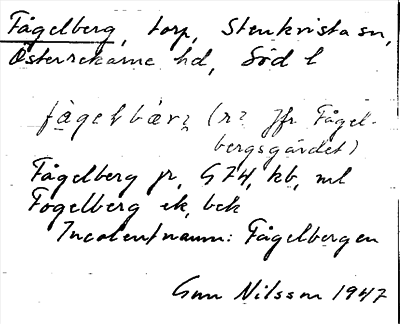 Fågelberg, torp, Stenkvista sn,
Österrekarne hd, Söd l
fågelbærj (r? Jfr Fågel-
bergsgärdet)
Fågelberg jr, G74, kb, ml
Fogelberg ek, bck
Incolentnamn: Fågelbergen
Gun Nilsson 1947